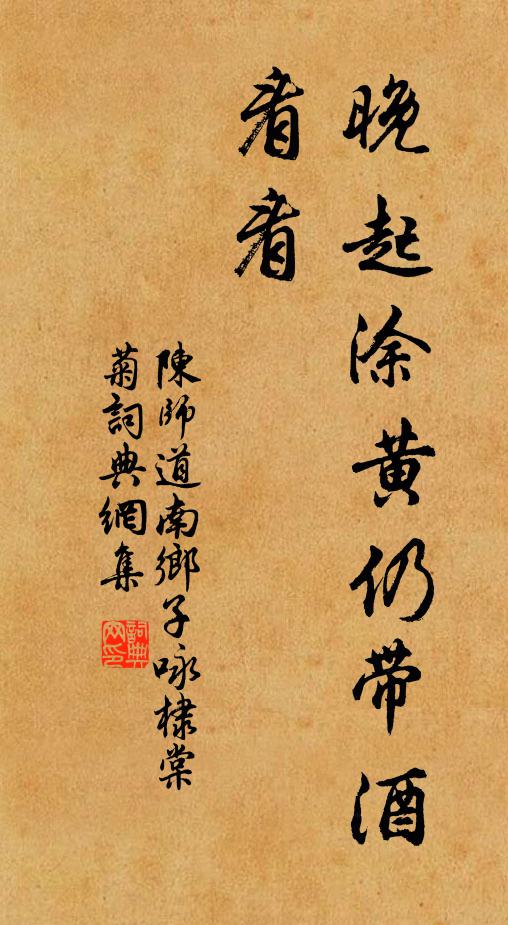 晚起涂黄仍带酒
看看
陳師道南鄉子咏棣棠
菊詞典網集
詞典網印